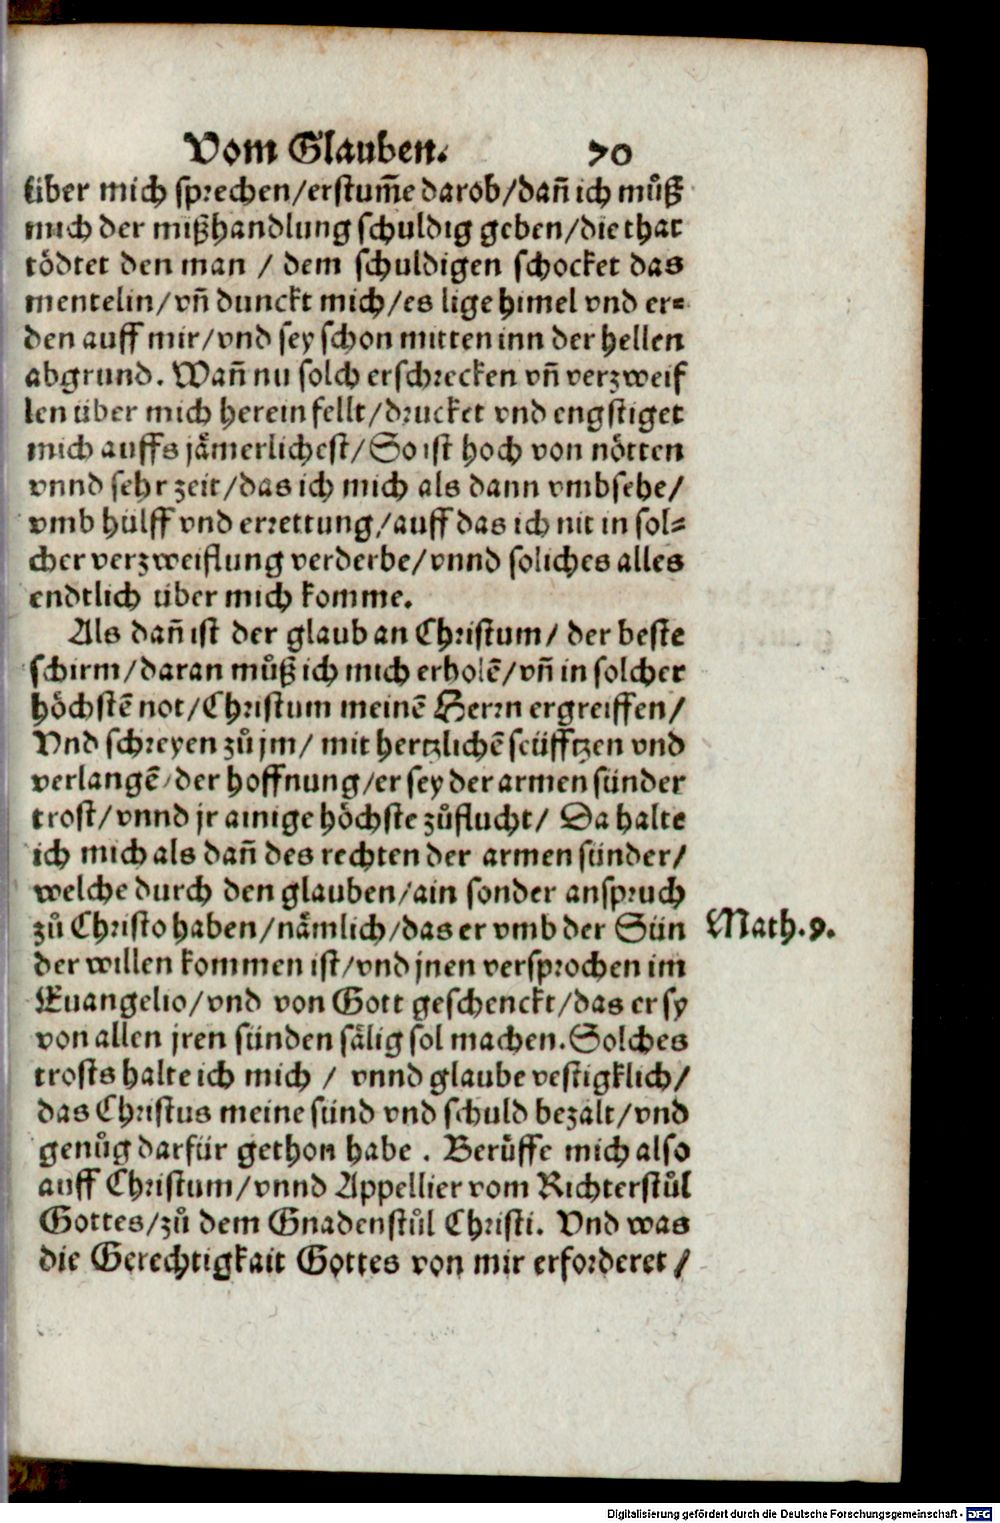 Vom Glauben. 70
über mich sprechen/erstum̃e darob/dañ ich můß
mich der mißhandlung schuldig geben/die that
tödtet den man / dem schuldigen schocket das
mentelin/vñ dunckt mich/es lige himel vnd er=
den auff mir/vnd sey schon mitten inn der hellen
abgrund. Wañ nu solch erschrecken vñ verzweif
len über mich herein fellt/drucket vnd engstiget
mich auffs jämerlichest/So ist hoch von nötten
vnnd sehr zeit/das ich mich als dann vmbsehe/
vmb hülff vnd errettung/auff das ich nit in sol=
cher verzweiflung verderbe/vnnd soliches alles
endtlich über mich komme.
Als dañ ist der glaub an Christum/ der beste
schirm/daran můß ich mich erholẽ/vñ in solcher
höchstẽ not/Christum meinẽ Herrn ergreiffen/
Vnd schreyen zů jm/ mit hertzlichẽ seüfftzen vnd
verlangẽ/der hoffnung/er sey der armen sünder
trost/vnnd jr ainige höchste zůflucht/ Da halte
ich mich als dañ des rechten der armen sünder/
welche durch den glauben/ain sonder anspruch
zů Christo haben/nämlich/das er vmb der Sün
der willen kommen ist/vnd jnen versprochen im
Euangelio/vnd von Gott geschenckt/das er sy
von allen jren sünden sälig sol machen. Solches
trosts halte ich mich / vnnd glaube vestigklich/
das Christus meine sünd vnd schuld bezalt/vnd
genůg darfür gethon habe . Berůffe mich also
auff Christum/vnnd Appellier vom Richterstůl
Gottes/zů dem Gnadenstůl Christi. Vnd was
die Gerechtigkait Gottes von mir erforderet /
Math.9.
Digitalisierung gefördert durch die Deutsche Forschungsgemeinschaft - DFG